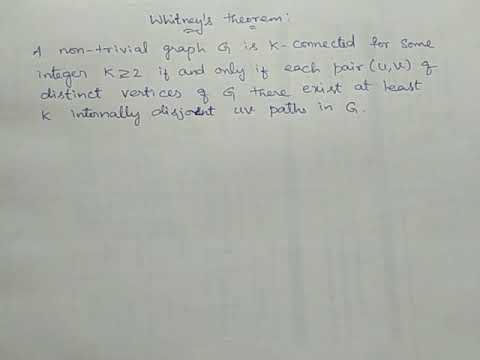 Whitney's theorem:
A non-trivial graph G is K-connected for some
integer K≥2 if and only if each pair (u,v) of
distinct vertices of G there exist at least
K internally disjoint uv paths in G.